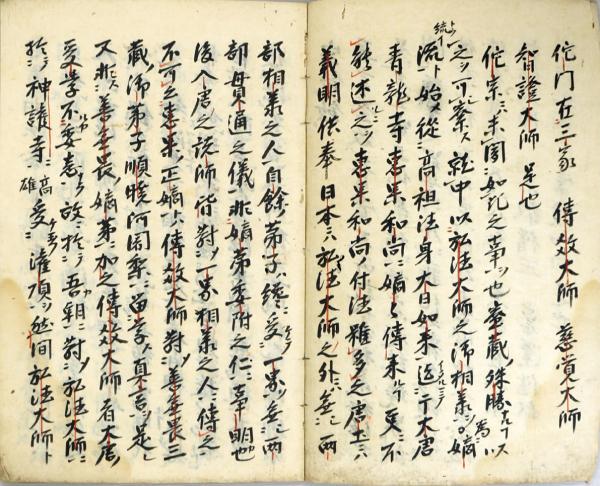 佗门在三家 傳教大師 慈覺大師
智證大師 是也
佗宗ニハ未聞如此之事ヲ也 密蔵殊勝ナルヿ以
之ヲ可察ス就中以弘法大師之御相承ヲ為嫡
流ト始メ従高祖法身大日如来迄テ大唐
青龍寺惠果和尚ニ嫡々傳来ルヿ更ニ不
能述之ヲ惠果和尚ノ付法雖多之唐土ニハ
義明供奉日本ニハ弘法大師之外ニ無シ両
部相承之人自餘ノ弟子ハ纔ニ受一界ヲ無シ両
部貫通之儀非嫡弟委附之仁ニ事明也
後入唐之諸師皆對一界相承之人ニ傳之
不可之惠果ノ正嫡ト傳教大師對善無畏三
蔵ノ御弟子順曉阿闍梨ニ留学ス真言ヲ是レ
又非ス善無畏ノ嫡弟ニ加之傳教大師者大唐ノ
受学不委悉ナラ故ニ於テ吾朝ニ對シ弘法大師ニ
於神護寺ニ高雄受灌頂ヲ然間弘法大師ト